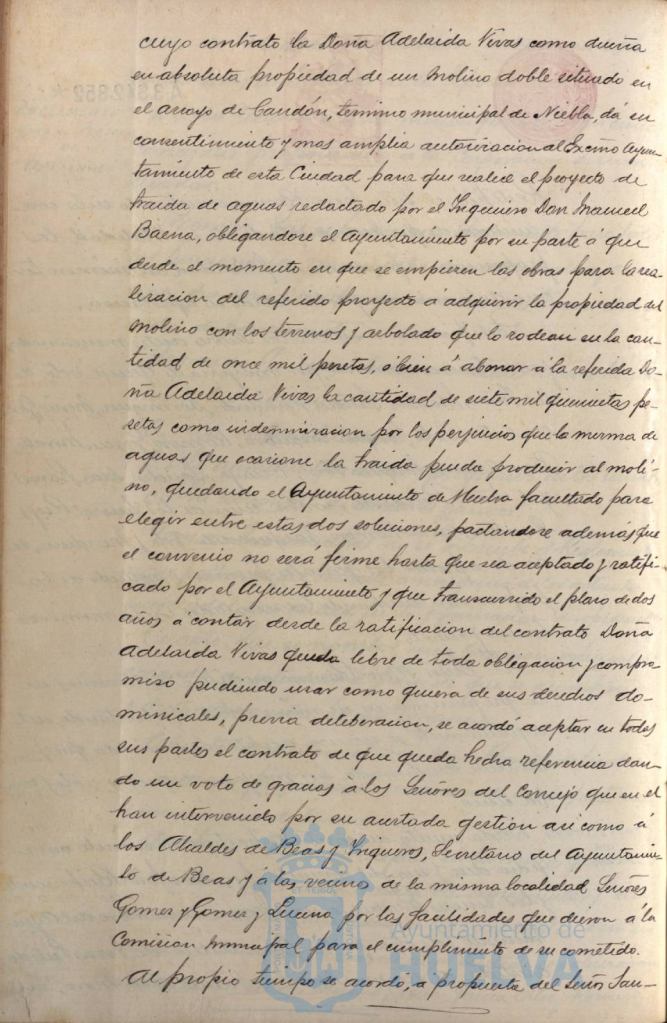 cuyo contrato la Doña Adelaida Vivas como dueña
en absoluta propiedad de un molino doble situado en
el arroyo de Candón, termino municipal de Niebla, dá su
consentimiento y mas amplia autorizacion al Excmo Ayun-
tamiento de esta Ciudad para que realice el proyecto de
traida de aguas redactado por el Ingeniero Don Manuel
Baena, obligandose el Ayuntamiento por su parte á que
desde el momento en que se empiezen las obras para la rea-
lizacion del referido proyecto á adquirir la propiedad del
molino con los terrenos y arbolado que lo rodean en la can-
tidad de once mil pesetas, ó bien á abonar á la referida Do-
ña Adelaida Vivas la cantidad de siete mil quinientas pe-
setas como indemnizacion por los perjuicios que la merma de
aguas que ocasione la traida pueda producir al moli-
no, quedando el Ayuntamiento de Huelva facultado para
elegir entre estas dos soluciones, pactandose además que
el convenio no será firme hasta que sea aceptado y ratifi-
cado por el Ayuntamiento y que transcurrido el plazo de dos
años á contar desde la ratificacion del contrato Doña
Adelaida Vivas queda libre de toda obligacion y compro-
miso pudiendo usar como quiera de sus derechos do-
minicales, previa deliberacion, se acordó aceptar en todas
sus partes el contrato de que queda hecha referencia dan-
do un voto de gracias á los Señores del Concejo que en el
han intervenido por su acertada gestion asi como á
los Alcaldes de Beas y Trigueros, Secretario del Ayuntamien-
to de Beas y á los vecinos de la misma localidad Señores
Gomez y Gomez y Lucena por las facilidades que dieron á la
Comision municipal para el cumplimiento de su cometido.
Al propio tiempo se acordó, a propuesta del Señor San-
Ayuntamiento de
HUELVA